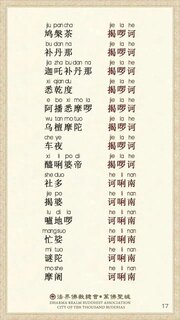 jiu pan cha    jie la he
鸠槃茶    揭啰诃
bu dan na    jie la he
补丹那    揭啰诃
jia zha bu dan na    jie la he
迦吒补丹那    揭啰诃
xi qian du    jie la he
悉乾度    揭啰诃
e bo xi mo la    jie la he
阿播悉摩啰    揭啰诃
wu tan mo tuo    jie la he
乌檀摩陀    揭啰诃
che ye    jie la he
车夜    揭啰诃
xi li po di    jie la he
醯唎婆帝    揭啰诃
she duo    he li nan
社多    诃唎南
jie po    he li nan
揭婆    诃唎南
lu di la    he li nan
嚧地啰    诃唎南
mang suo    he li nan
忙娑    诃唎南
mi tuo    he li nan
谜陀    诃唎南
mo she    he li nan
摩阇    诃唎南
法界佛教总会・万佛圣城
DHARMA REALM BUDDHIST ASSOCIATION
CITY OF TEN THOUSAND BUDDHAS
17